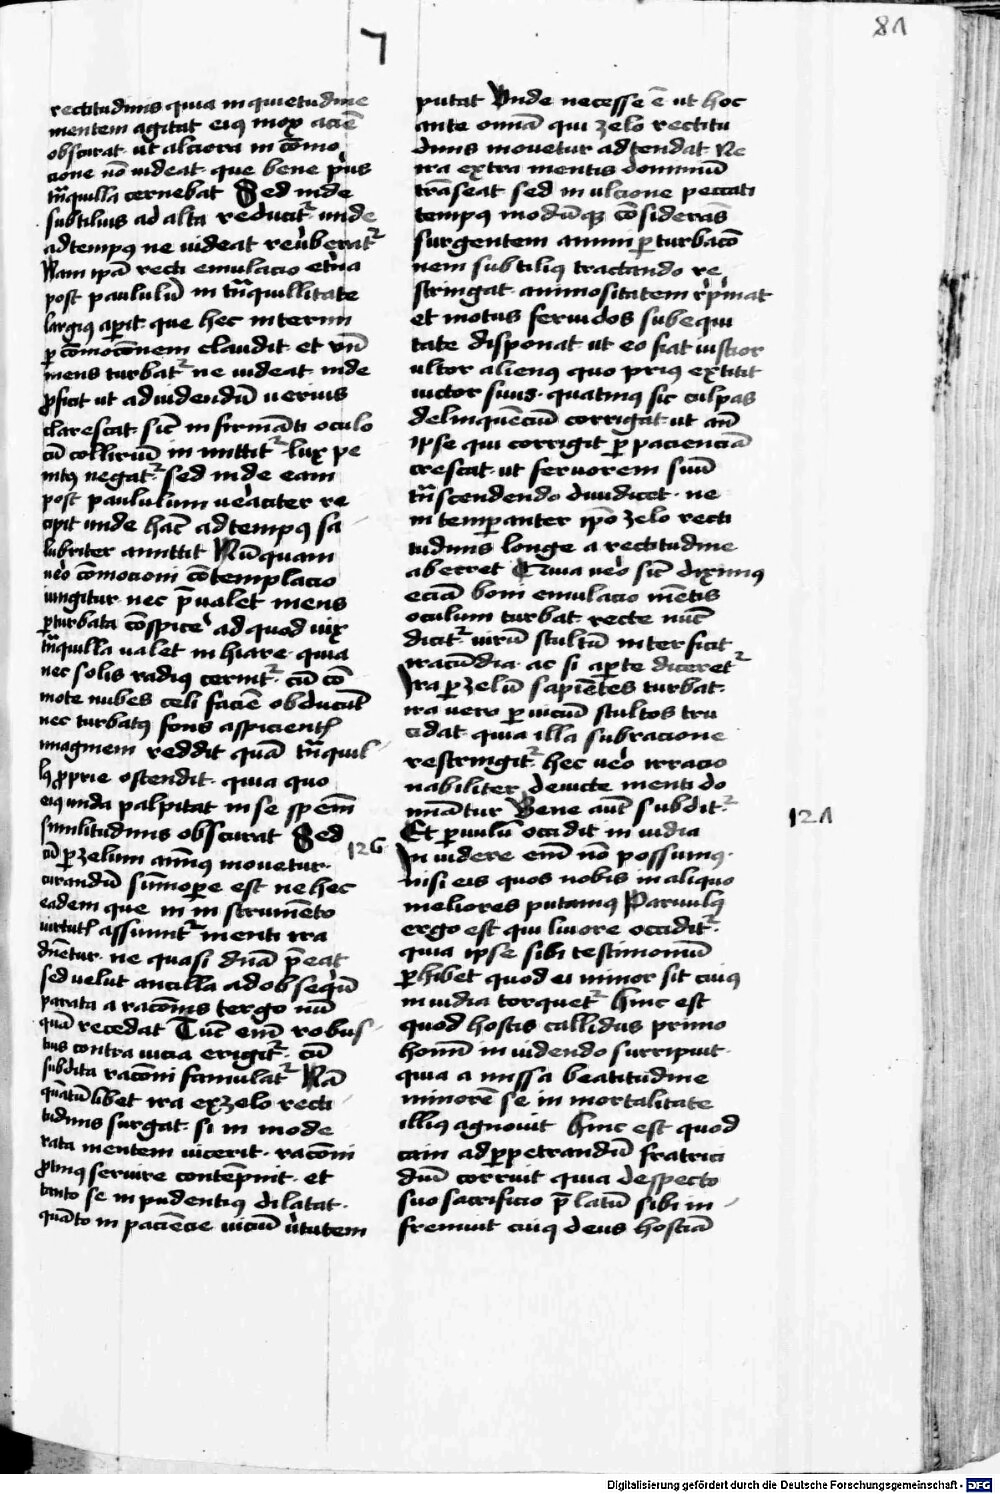 7
81
rectitudinis quia inquietudine
mentem agitat eiꝰ mox aciē
obscurat ut alciora in cōmo
cione nō uideat que bene pͥus
tͣnquilla cernebat Sed inde
subtilius ad alta reducitᷣ unde
ad tempꝰ ne uideat reuͥberatᷣ
Nam ipā recti emulacio et̾na
post paululū in tͣnquillitate
largiꝰ aꝑit que hec interim
ꝑ cōmocōnem claudit et vn̄
mens turbatᷣ ne uideat inde
ꝓficit ut ad uidendū uerius
clarescat sic̄ infirmāti oculo
cū colliriū in mittitᷣ lux pe
nitꝰ negatᷣ sed inde eam
post paululum ueͣciter re
cipit unde hac̄ ad tempꝰ sa
lubriter amittit Nūquam
ueͦ cōmocioni cōtemplacio
iungitur nec p̄ualet mens
ꝑturbata cōspice̾ ad quod uix
tͣnquilla ualet inhiare quia
nec solis radiꝰ cernitᷣ cū cō
mote nubes celi faciē obducūt
nec turbatꝰ fons aspicientꝭ
imaginem reddit quā tͣnquil
lꝰ ꝓprie ostendit quia quo
eiꝰ unda palpitat in se spēm
similitudinis obscurat Sed
cū ꝑ zelum animꝰ mouetur
curandū sūmoꝑe est ne hec
eadem que in instrumēto
uirtutꝭ assumitᷣ menti ira
dn̄etur ne quasi dn̄a p̄eat
sed velut ancilla ad obsequiū
parata a racōnis tergo nū
quā recedat Tūc enī robus
tius contra uicia erigitᷣ cū
subdita racōni famulatᷣ Nā
quātūlibet ira ex zelo recti
tudinis surgat si inmode
rata mentem uicerit racōni
ꝓtinꝰ seruire contēpnit et
tanto se inpudentiꝰ dilatat
quāto inpaciēcie uiciū uͥtutem
126
putat Vnde necesse ē ut hoc
ante omīa qui zelo rectitu
dinis mouetur adtendat Ne
ira extra mentis dominiū
trāseat sed in ulcione peccati
tempꝰ modūqꝫ cōsiderās
surgentem animi ꝑturbacō
nem subtiliꝰ tractando re
stringat animositatem rep̾mat
et motus feruidos sub equi
tate disponat ut eo fiat iustior
ultor alienꝰ quo priꝰ extitit
uictor suus quatinꝰ sic culpas
delinquēciū corrigat ut an̄
ipse qui corrigit ꝑ pacienciā
crescat ut feruorem suū
tͣnscendendo diiudicet ne
intemꝑanter ip̄o zelo recti
tudinis longe a rectitudine
aberret Quia ueͦ sic̄ diximus
eciā boni emulacio mētis
oculum turbat recte nūc
dicitᷣ uirū stultū interficit
iracūdia ac si aꝑte diceretᷣ
Ira ꝑ zelū sapiētes turbat
ira uero ꝑ uiciū stultos tru
cidat quia illa sub racione
restringitᷣ hec ueͦ irracio
nabiliter deuicte menti do
minātur Bene aūt subditᷣ
Et ꝑuulū occidit inuidia
Inuidere enī nō possumꝰ
nisi eis quos nobis in aliquo
meliores putamꝰ Paruulꝰ
ergo est qui liuore occiditᷣ
quia ipse sibi testimoniū
ꝑhibet quod ei minor sit cuius
inuidia torquetᷣ Hinc est
quod hostis callidus primo
homī inuidendo surripuit
quia amissa beatitudine
minorē se inmortalitate
illius agnouit Hinc est quod
cain ad ꝑpetrandū fratrici
diū corruit quia despecto
suo sacrificio p̄latū sibi in
fremuit cuiꝰ deus hostiā
121
Digitalisierung gefördert durch die Deutsche Forschungsgemeinschaft - DFG